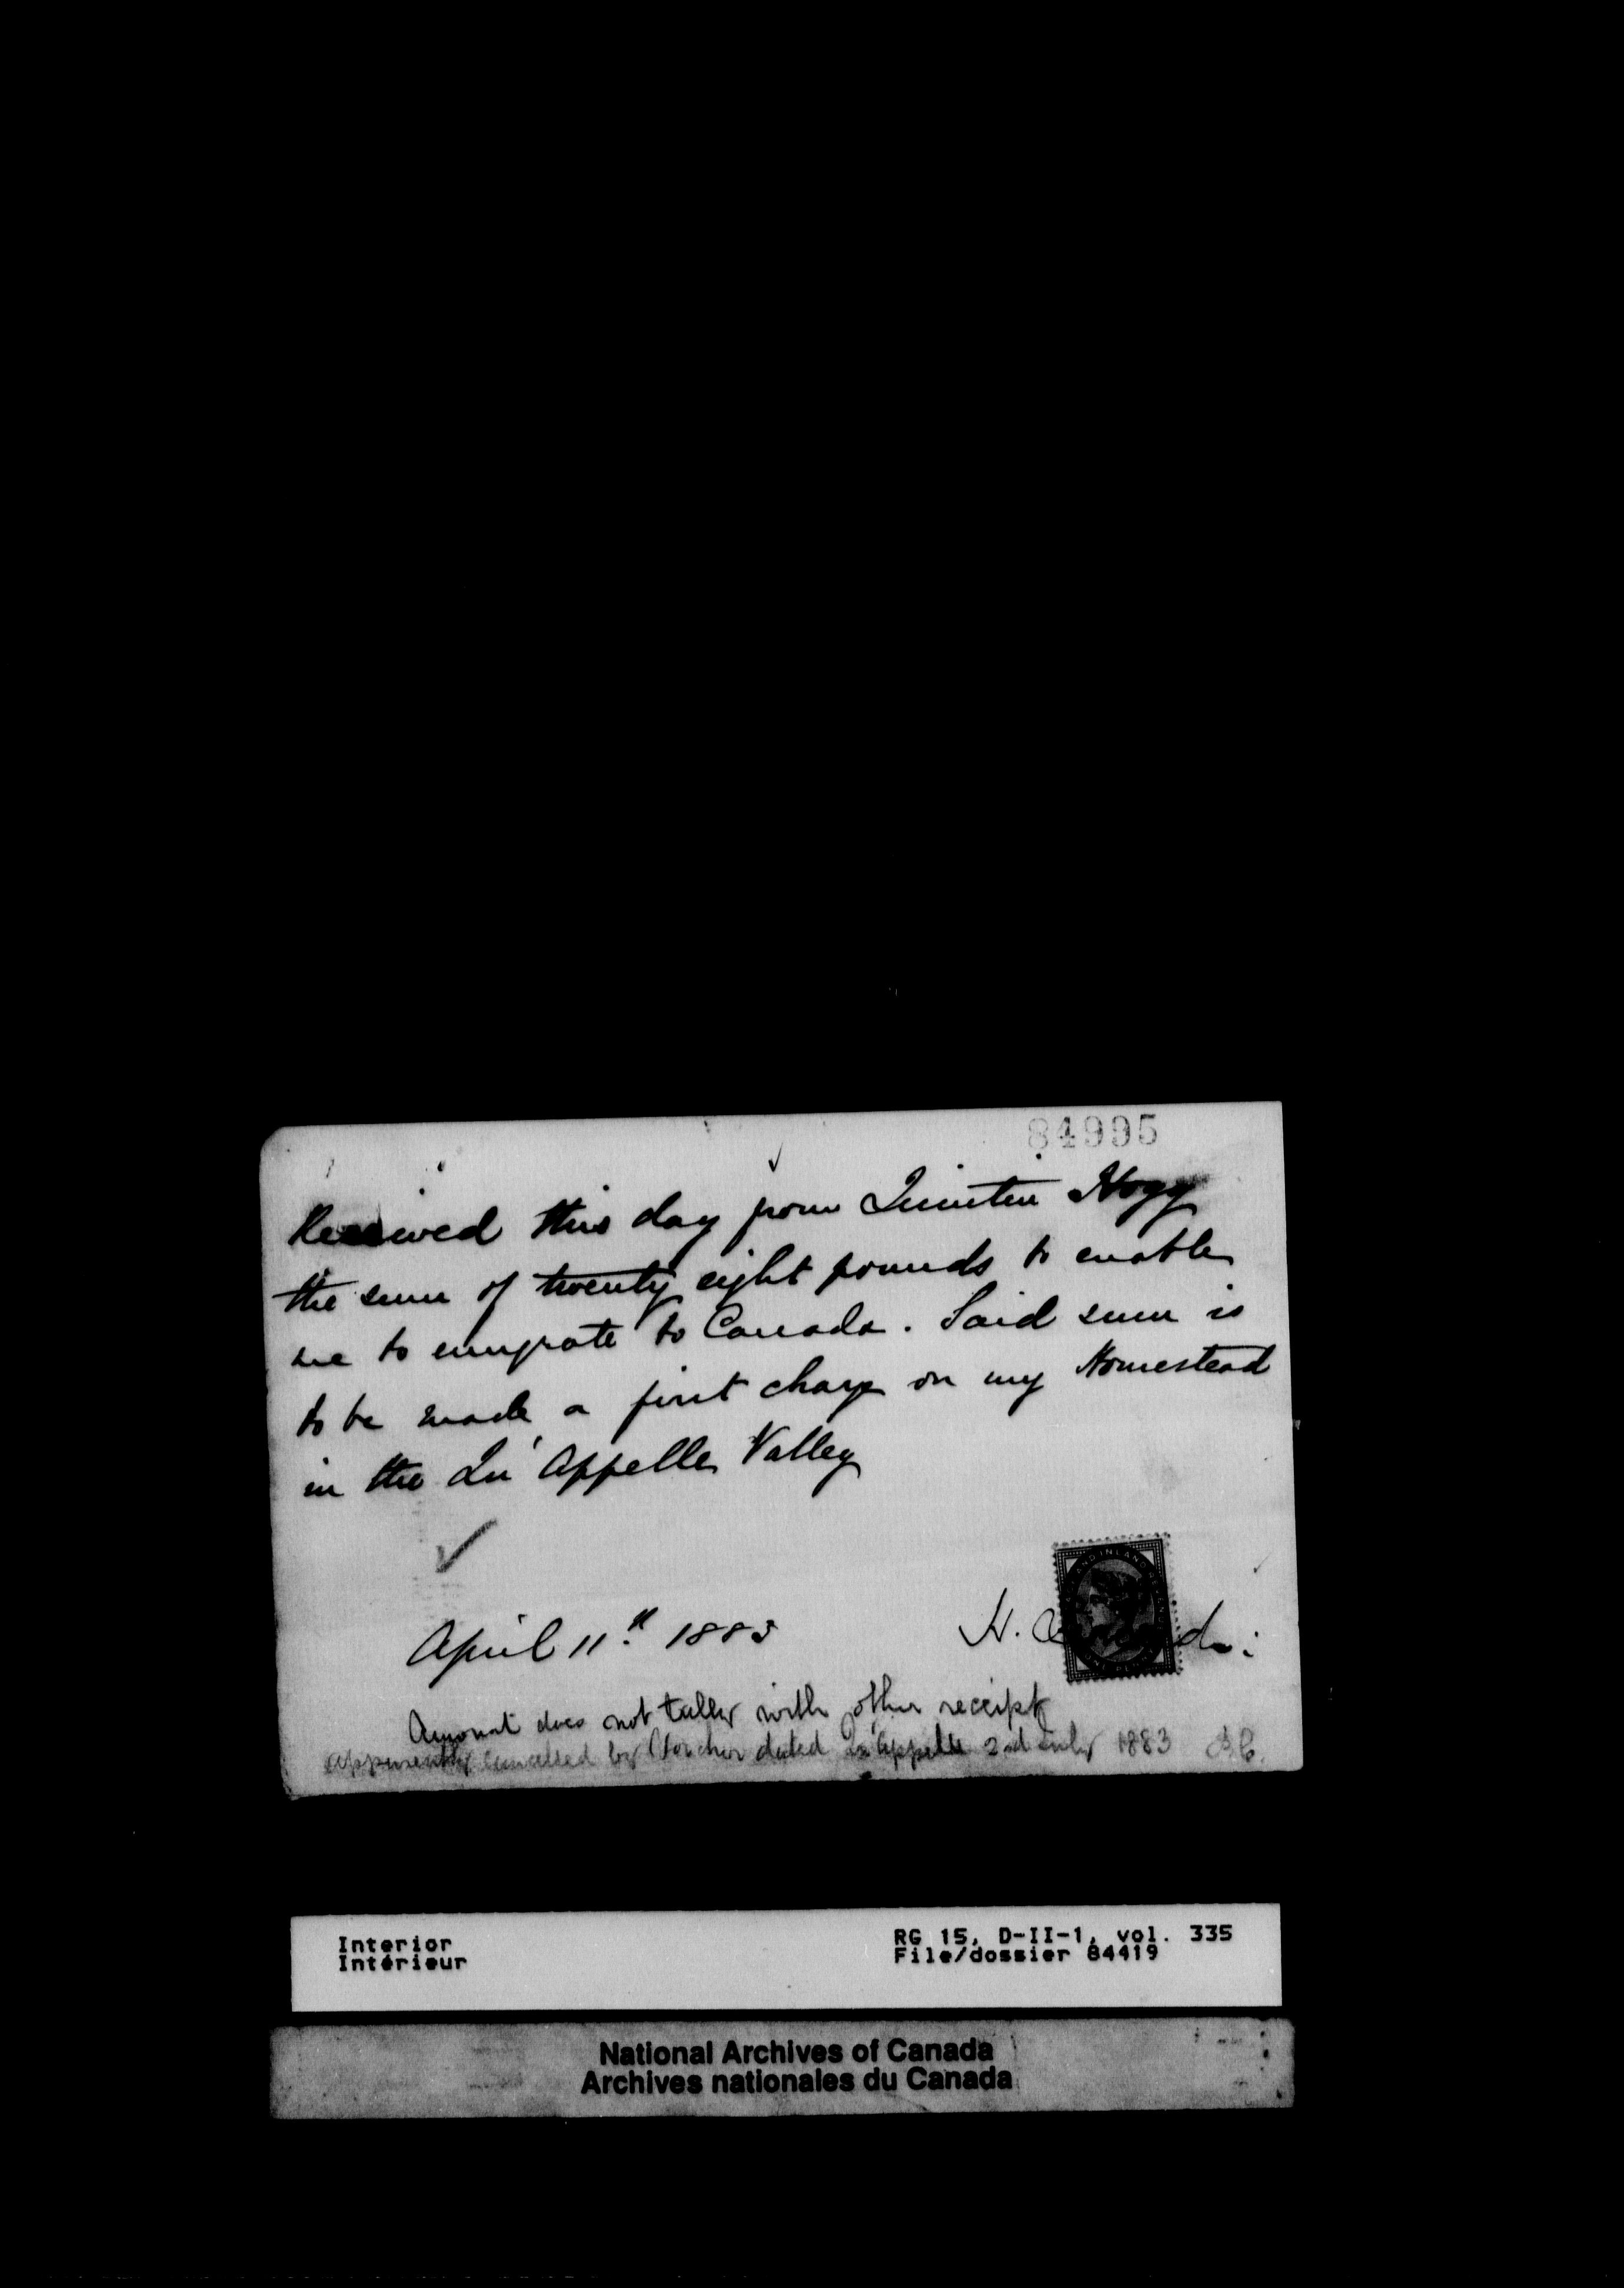 84995
Received this day from Quintin Hogg
the sum of twenty eight pounds to enable
me to emigrate to Canada. Said sum is
to be made a first charge on my Homestead
in the Qu'Appelle Valley
April 11th 1883
H.
Amount does not tally with other receipt
apparently cancelled by Voucher dated Qu'Appelle 2nd July 1883
Interior
Intérieur
RG 15, D-II-1, vol. 335
File/dossier 84419
National Archives of Canada
Archives nationales du Canada